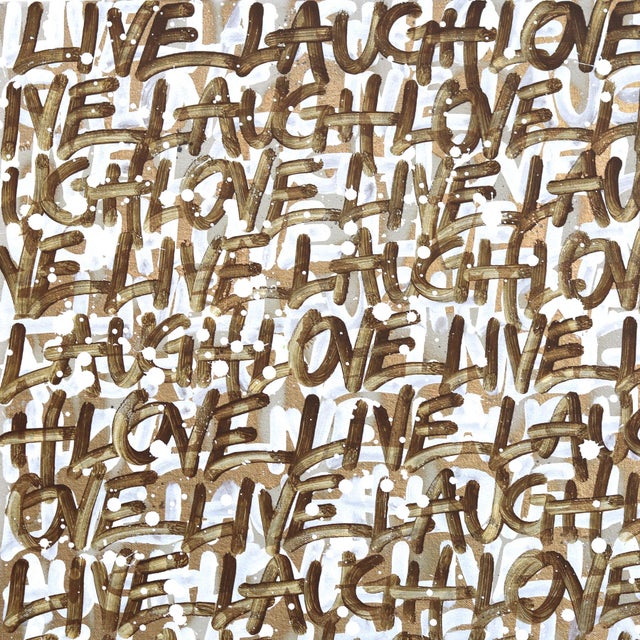 LIVE LAUGH LOVE
IVE LAUGH LOVE L
UGH LOVE LIVE LAU
VE LIVE LAUGH LOV
LAUGH LOVE LIVE L
H LOVE LIVE LAU
OVE LIVE LAUGH L
LIVE LAUGH LOVE